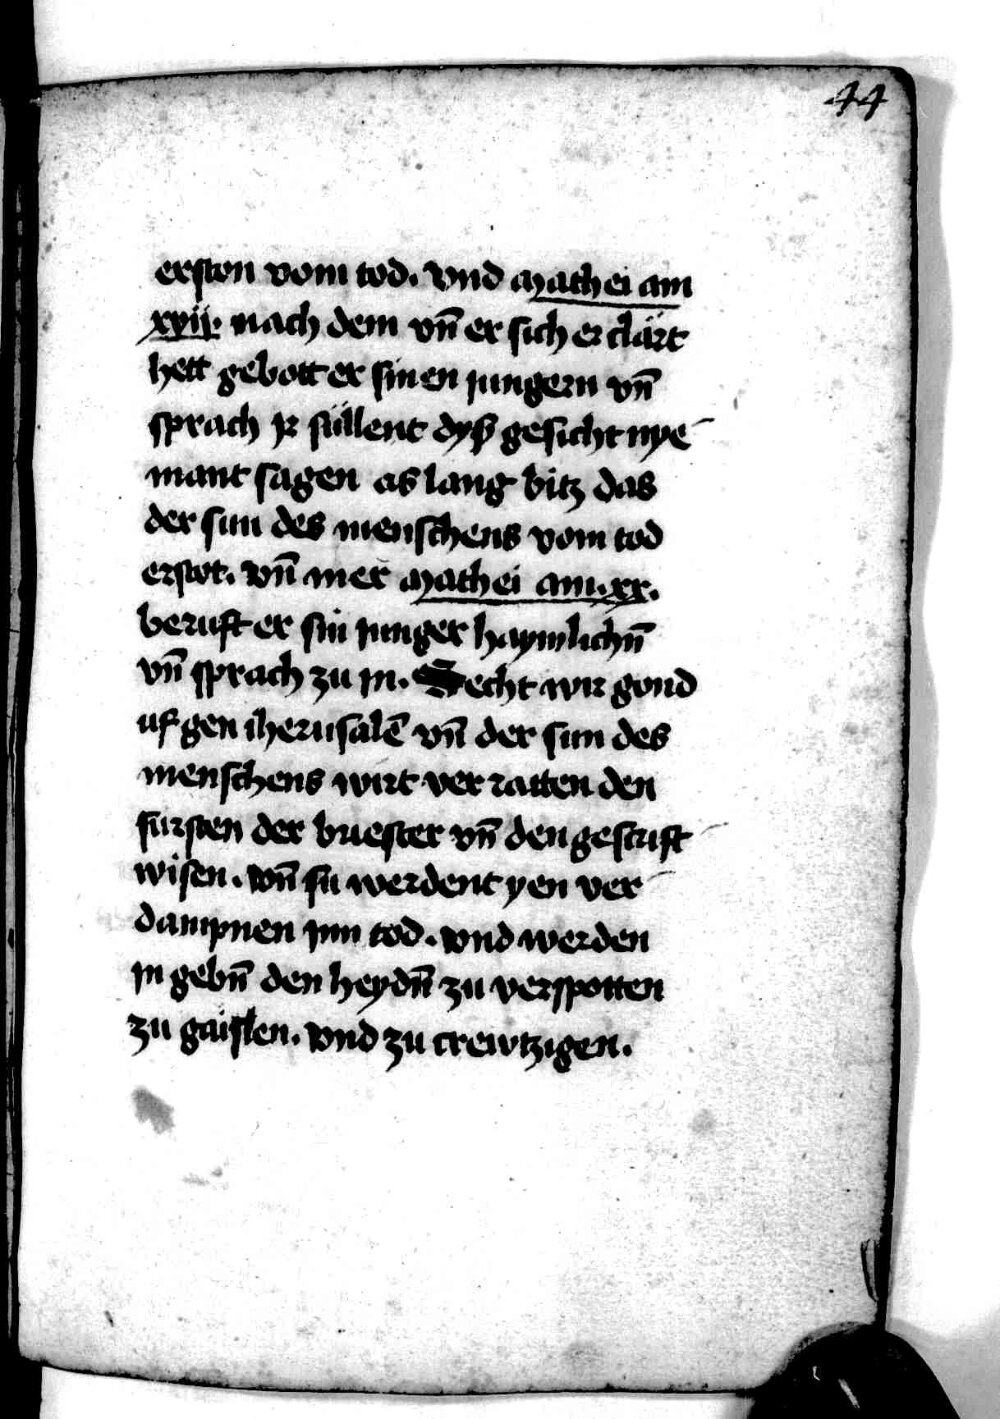 44
erston vom tod. Vnd Mathei am
xvij. nach dem vn̄ er sich erclärt
hett gebott er sinen jungern vn̄
sprach jr süllent dyß gesicht nye
mant sagen as lang bitz das
der sun des menschens vom tod
erstot. Vn̄ mer Mathei am .xx.
beruft er sin junger haymlichn̄
vn̄ sprach zu jn. Secht wir gond
uf gen iherusalē vn̄ der sun des
menschens wirt verratten den
fürsten der briester vn̄ den gescrift
wisen. Vn̄ sü werdent yen ver
dampnen jnn tod. Vnd werden
jn gebn̄ den heydn̄ zu verspotten
zu gaislen. Vnd zu crewtzigen.